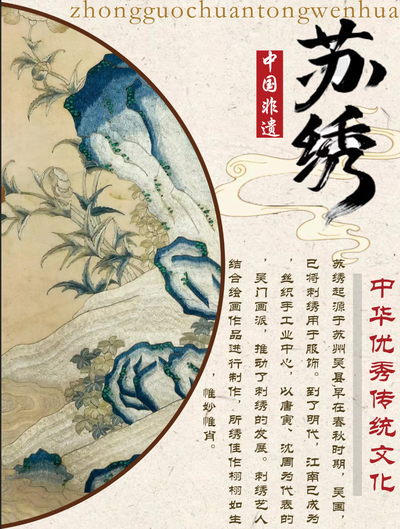 zhongguochuantongwenhua
苏绣
中国非遗
中华优秀传统文化
苏绣起源于苏州吴县早在春秋时期，吴国，
已将刺绣用于服饰。到了明代，江南已成为
，丝织手工业中心，以唐寅、沈周为代表的
，吴门画派，推动了刺绣的发展。刺绣艺人
结合绘画作品进行制作，所绣佳作栩栩如生
，惟妙惟肖。